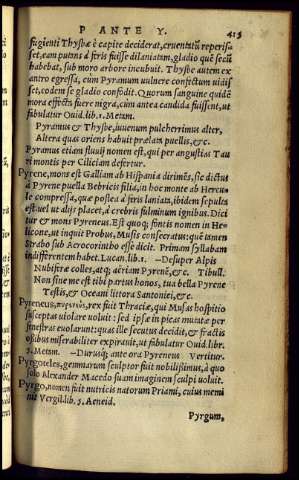 P ANTE Y. 415
fugienti Thysbæ è capite deciderat, cruentatũ reperis-
set, eam putans à feris fuisse dilaniatam, gladio quē secũ
habebat, sub moro arbore incubuit. Thysbe autem ex
antro egressa, cùm Pyramum vulnere confectum vidis
set, eodem se gladio confodit. Quorum sanguine quidē
mora effectũ fuere nigra, cùm antea candida fuissent, ut
fabulatur Ouid. lib. 4. Metam.
Pyramus & Thysbe, iuuenum pulcherrimus alter,
Altera quas oriens habuit prælam puellis, &c.
Pyramus etiam fluuij nomen est, qui per angustias Tau
ri montis per Ciliciam defertur.
Pyrene, mons est Galliam ab Hispania dirimēs, sic dictus
à Pyrene puella Bebricis filia, in hoc monte ab Hercu-
le compressa, quæ postea à feris laniata, ibidem sepulta
est: uel ut alijs placet, à crebris fulminum ignibus. Dici
tur & mons Pyreneus. Est quoq; fontis nomen in He-
licone, ut inquit Probus, Musis consecratus: quē tamen
Strabo sub Acrocorintho esse dicit. Primam syllabam
indifferentem habet. Lucan. lib. 1. —Desuper Alpis
Nubiferæ colles, atq; aëriam Pyrenē, &c. Tibull.
Non sine me est tibi partus honos, tua bella Pyrene
Testis, & Oceani littora Santonici, &c.
Pyreneus, rex fuit Thraciæ, qui Musas hospitio
susceptas uiolare uoluit: sed ipsæ in picas mutatæ per
fenestras euolarunt: quas ille secutus decidit, & fractis
ossibus miserabiliter expirauit, ut fabulatur Ouid. lib.
5. Metam. —Diuusq; ante ora Pyreneus Vertitur.
Pyrgoteles, gemmarum sculptor fuit nobilissimus, à quo
solo Alexander Macedo suam imaginem sculpi uoluit.
Pyrgo, nomen fuit nutricis natorum Priami, cuius memi
nit Vergil. lib. 5. Aeneid.
Pyrgum,